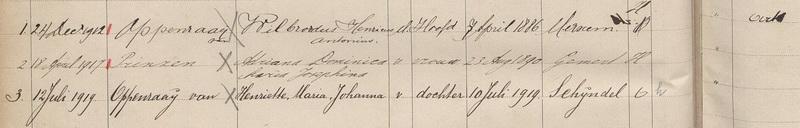 1. 24 Dec 1912 Oppenraay van Wilbrordus Henricus Antonius. M. Hoofd 7 April 1886
2 18 April 1917 Prinzen Adriana Dominica Maria Josephina v vrouw 23 Aug 1890 Gemert K
3. 12 Juli 1919. Oppenraaÿ van Henriette, Maria, Johanna v dochter 10 Juli 1919. Schÿndel